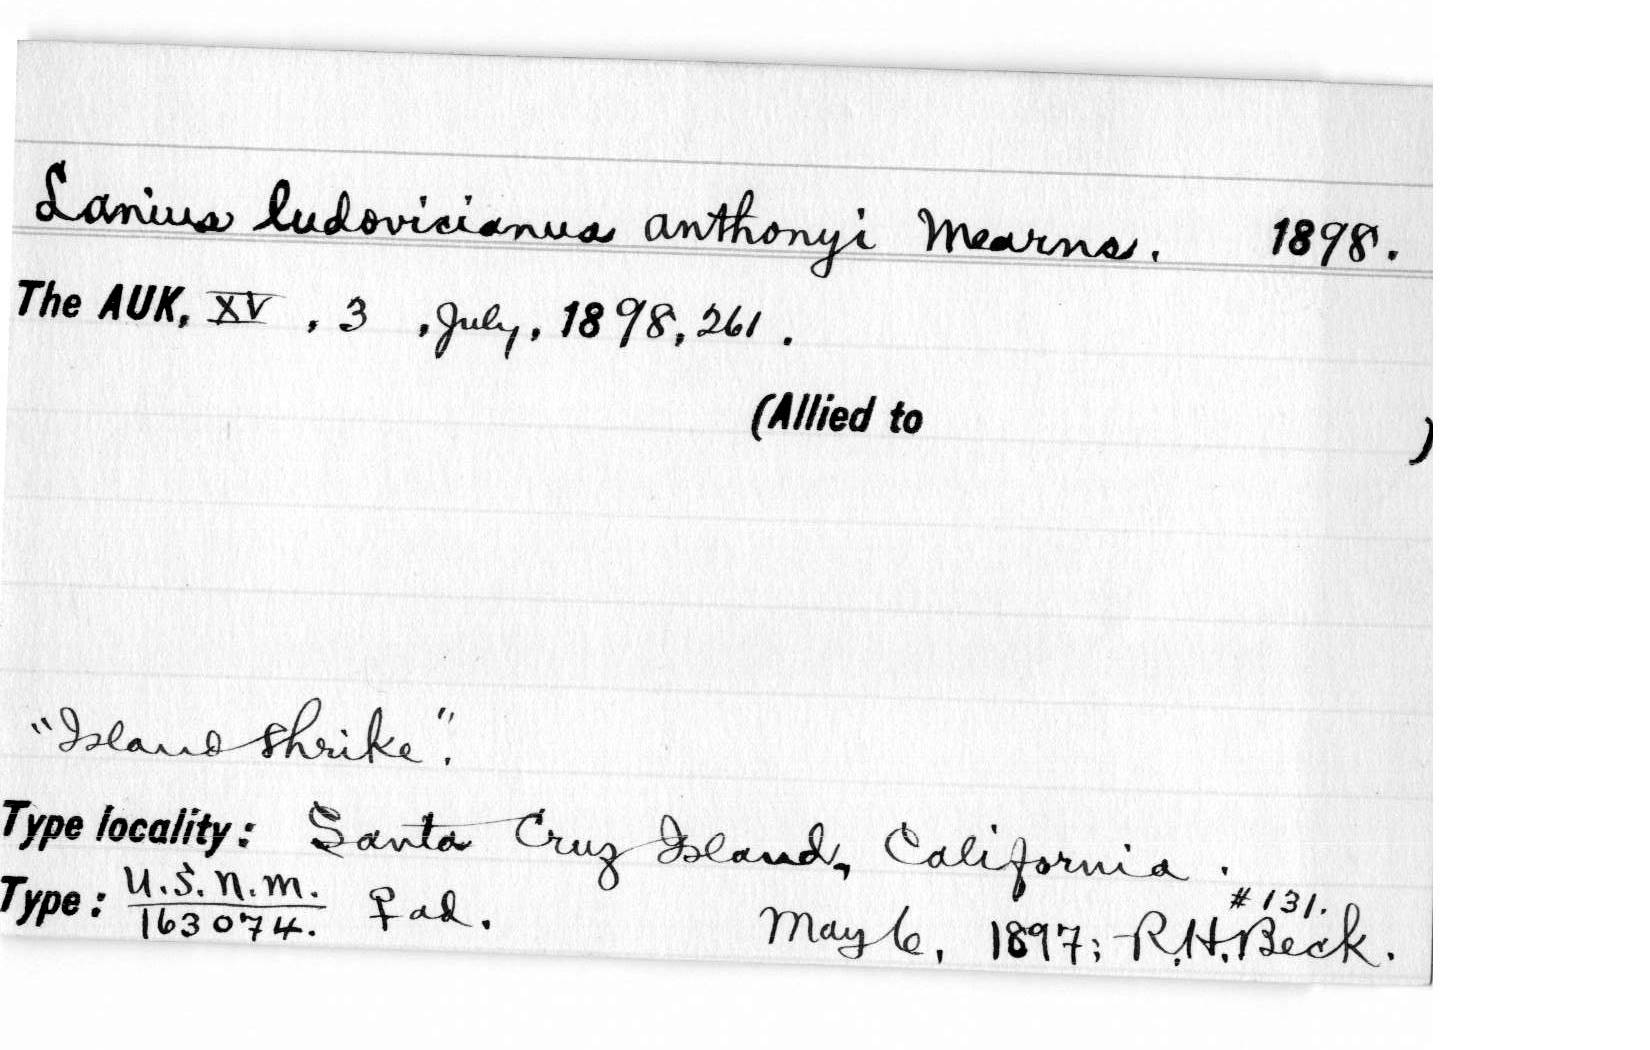 Lanius ludovicianus anthonyi Mearns. 1898.
The AUK, XV, 3, July, 1898, 261.
(Allied to )
"Island Shrike".
Type locality: Santa Cruz Island, California.
Type: U.S.N.M. 163074. ♀ ad. May 6, 1897; R.H. Beck. #131.